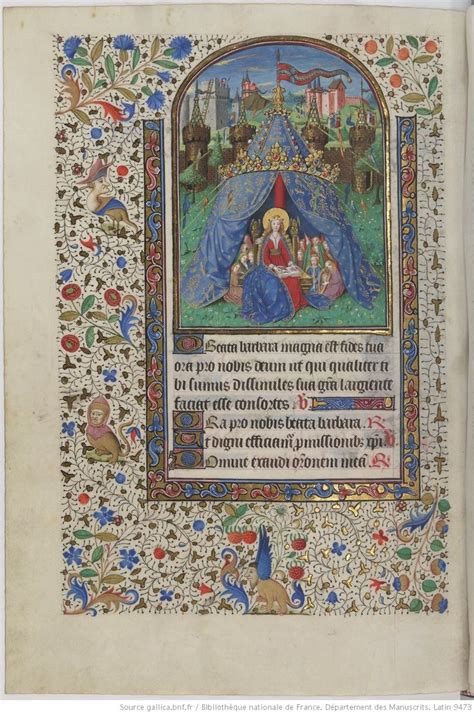 O Beata barbara magna est fides tua
ora pro nobis deum ut qui qualiter ti
bi sumus dissimiles sua gr̃a largiente
faciat esse consortes. V
Ora pro nobis beata barbara. R
Ut digni efficiam̃ p̃missionibus xp̃i
Domine exaudi or̃onem meã R
Source gallica.bnf.fr / Bibliothèque nationale de France, Département des Manuscrits. Latin 9473